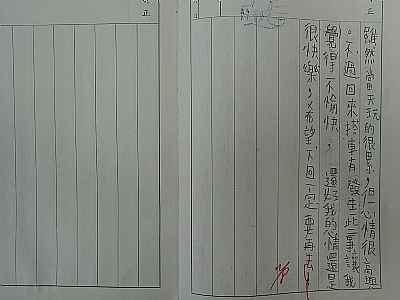 雖然當天玩的很累,但心情很高興
。不過回來搭車有發生些事讓我
覺得不愉快,還好我的心情還是
很快樂,希望下回一定要再去
正